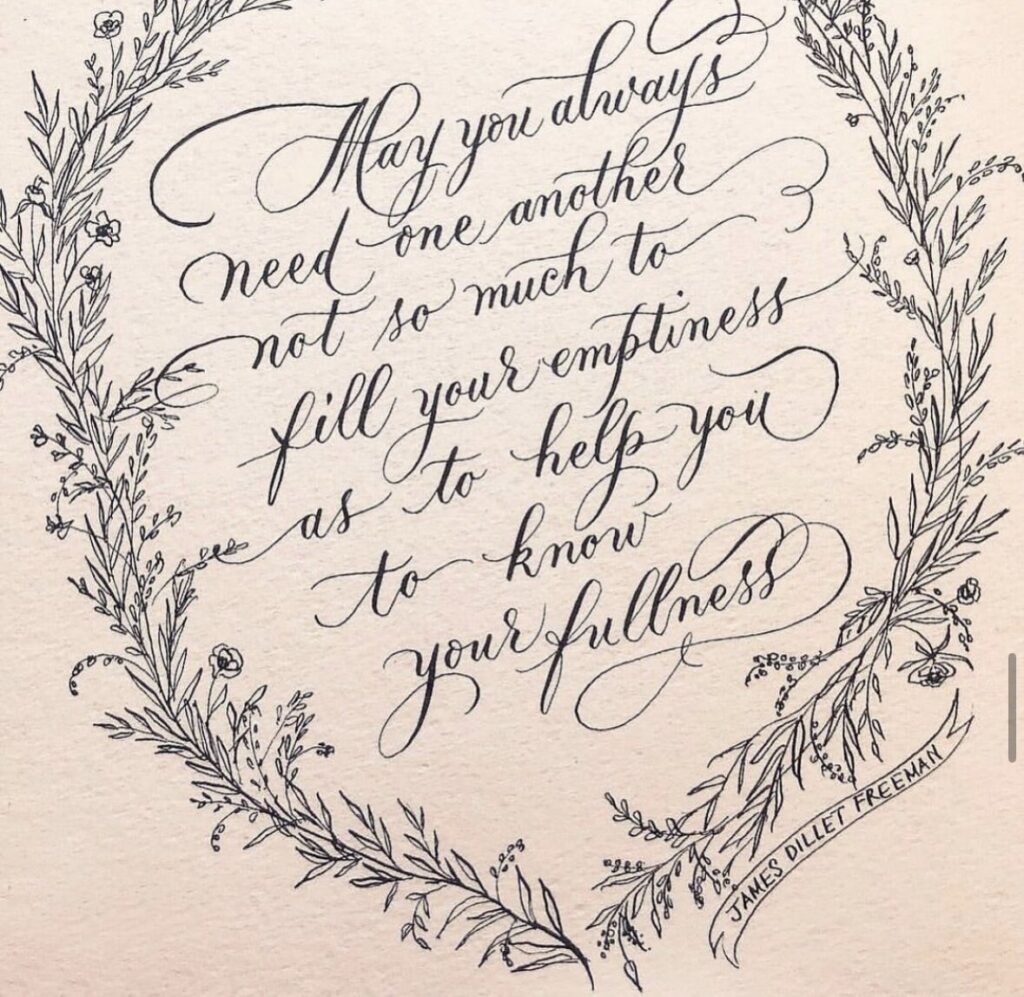 May you always
need one another
not so much to
fill your emptiness
as to help you
to know
your fullness
JAMES DILLET FREEMAN